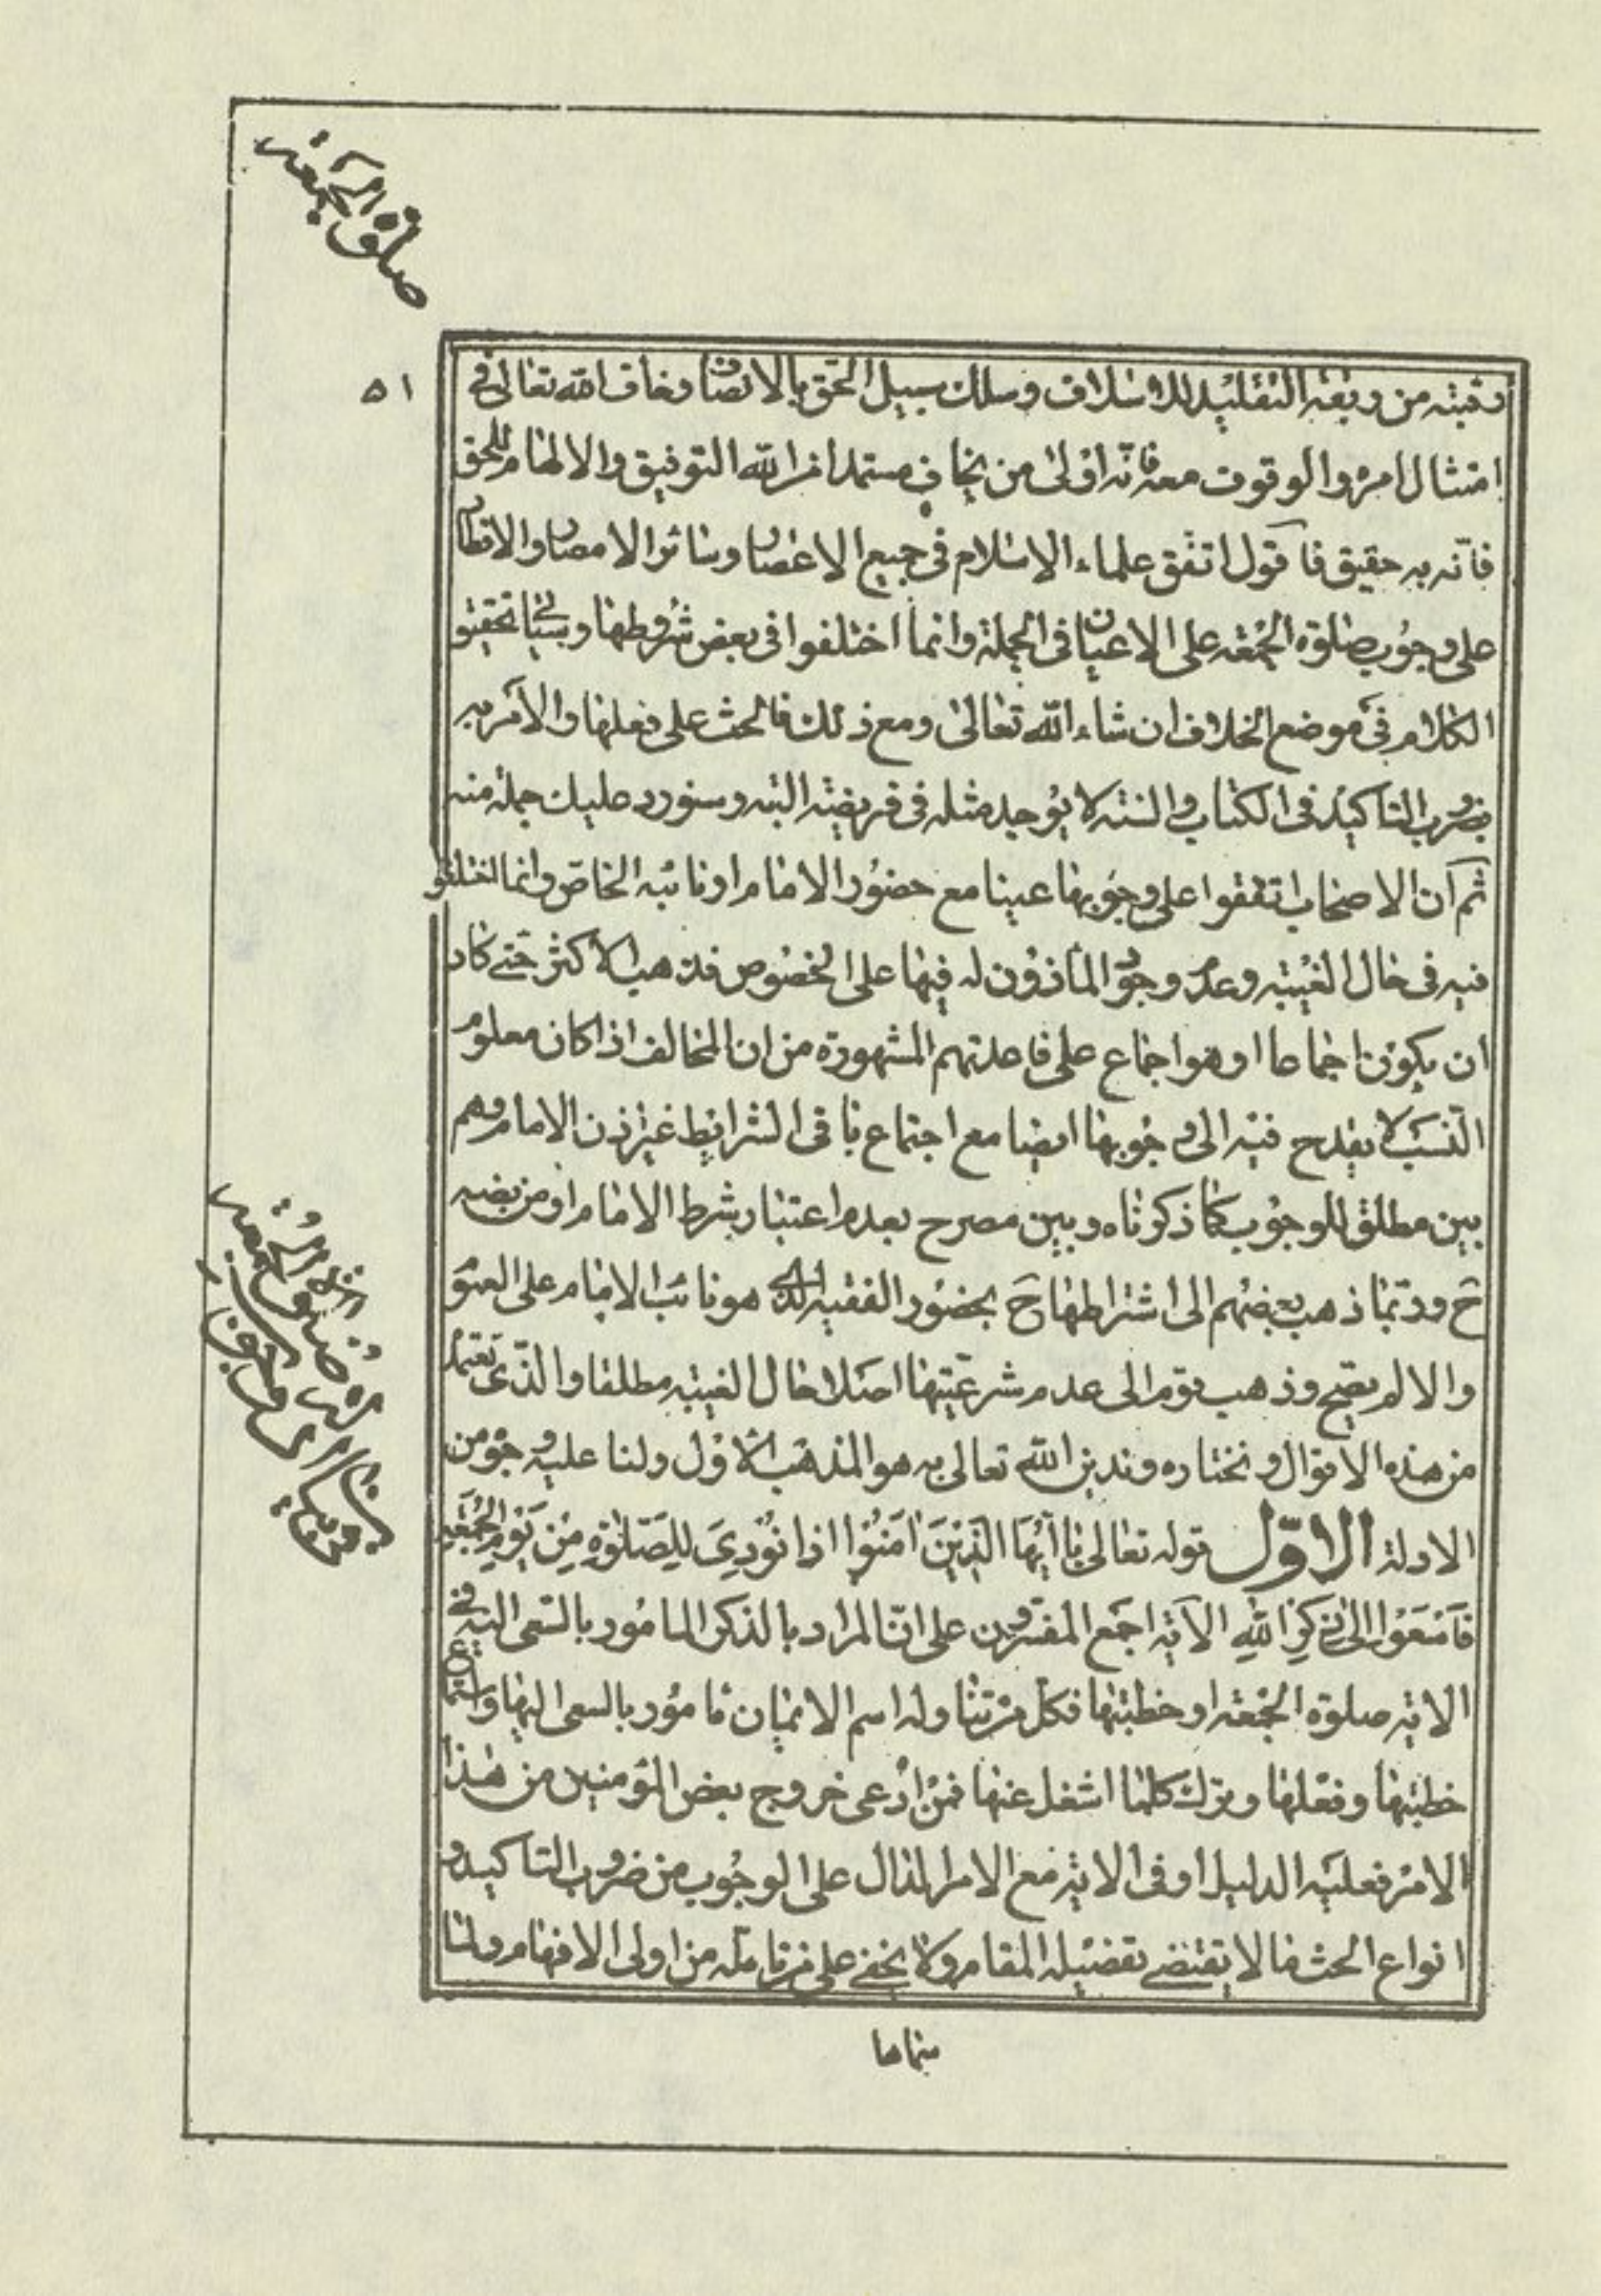 صلوة الجمعة
٥١
رقبته من ربقة التقليد للاسلاف وسلك سبيل الحق بالانصاف وخاف الله تعالى فى
امتثال امره والوقوف معه فانه اولى من يخاف مستمدا من الله التوفيق والالهام للحق
فانه به حقيق فاقول اتفق علماء الاسلام فى جميع الاعصار وسائر الامصار والاقطار
على وجوب صلوة الجمعة على الاعيان فى الجملة وانما اختلفوا فى بعض شروطها وسيأتى تحقيق
الكلام فى موضع الخلاف ان شاء الله تعالى ومع ذلك فالحث على فعلها والامر به
بضروب التاكيد فى الكتاب والسنة لا يوجد مثله فى فريضة البتة وسنورد عليك جملة منه
ثم ان الاصحاب اتفقوا على وجوبها عينا مع حضور الامام او نائبه الخاص وانما اختلفوا
فيه فى حال الغيبة وعدم وجود الماذون له فيها على الخصوص فذهب الاكثر حتى كاد
ان يكون اجماعا او هو اجماع على قاعدتهم المشهورة من ان المخالف اذا كان معلوم
النسب لا يقدح فيه الى وجوبها ايضا مع اجتماع باقى الشرايط غير اذن الامام وهم
بين مطلق للوجوب كما ذكرناه وبين مصرح بعدم اعتبار شرط الامام او من نصبه
ح وربما ذهب بعضهم الى اشتراطها ح بحضور الفقيه الذى هو نائب الامام على العموم
والا لم يصح وذهب قوم الى عدم شرعيتها اصلا حال الغيبة مطلقا والذى نعتمد
من هذه الاقوال ونختاره وندين الله تعالى به هو المذهب الاول ولنا عليه وجوه من
الادلة الاول قوله تعالى يا ايها الذين امنوا اذا نودى للصلوة من يوم الجمعة
فاسعوا الى ذكر الله الاية اجمع المفسرون على ان المراد بالذكر المامور بالسعى اليه فى
الاية صلوة الجمعة او خطبتها فكل من تناوله اسم الايمان مامور بالسعى اليها واستماع
خطبتها وفعلها وترك كلما اشغل عنها فمن ادعى خروج بعض المؤمنين من هذا
الامر فعليه الدليل وفى الاية مع الامر الدال على الوجوب من ضروب التاكيد و
انواع الحث ما لا يقتضى تفصيله المقام ولا يخفى على من تامله من اولى الافهام ولما
سماها